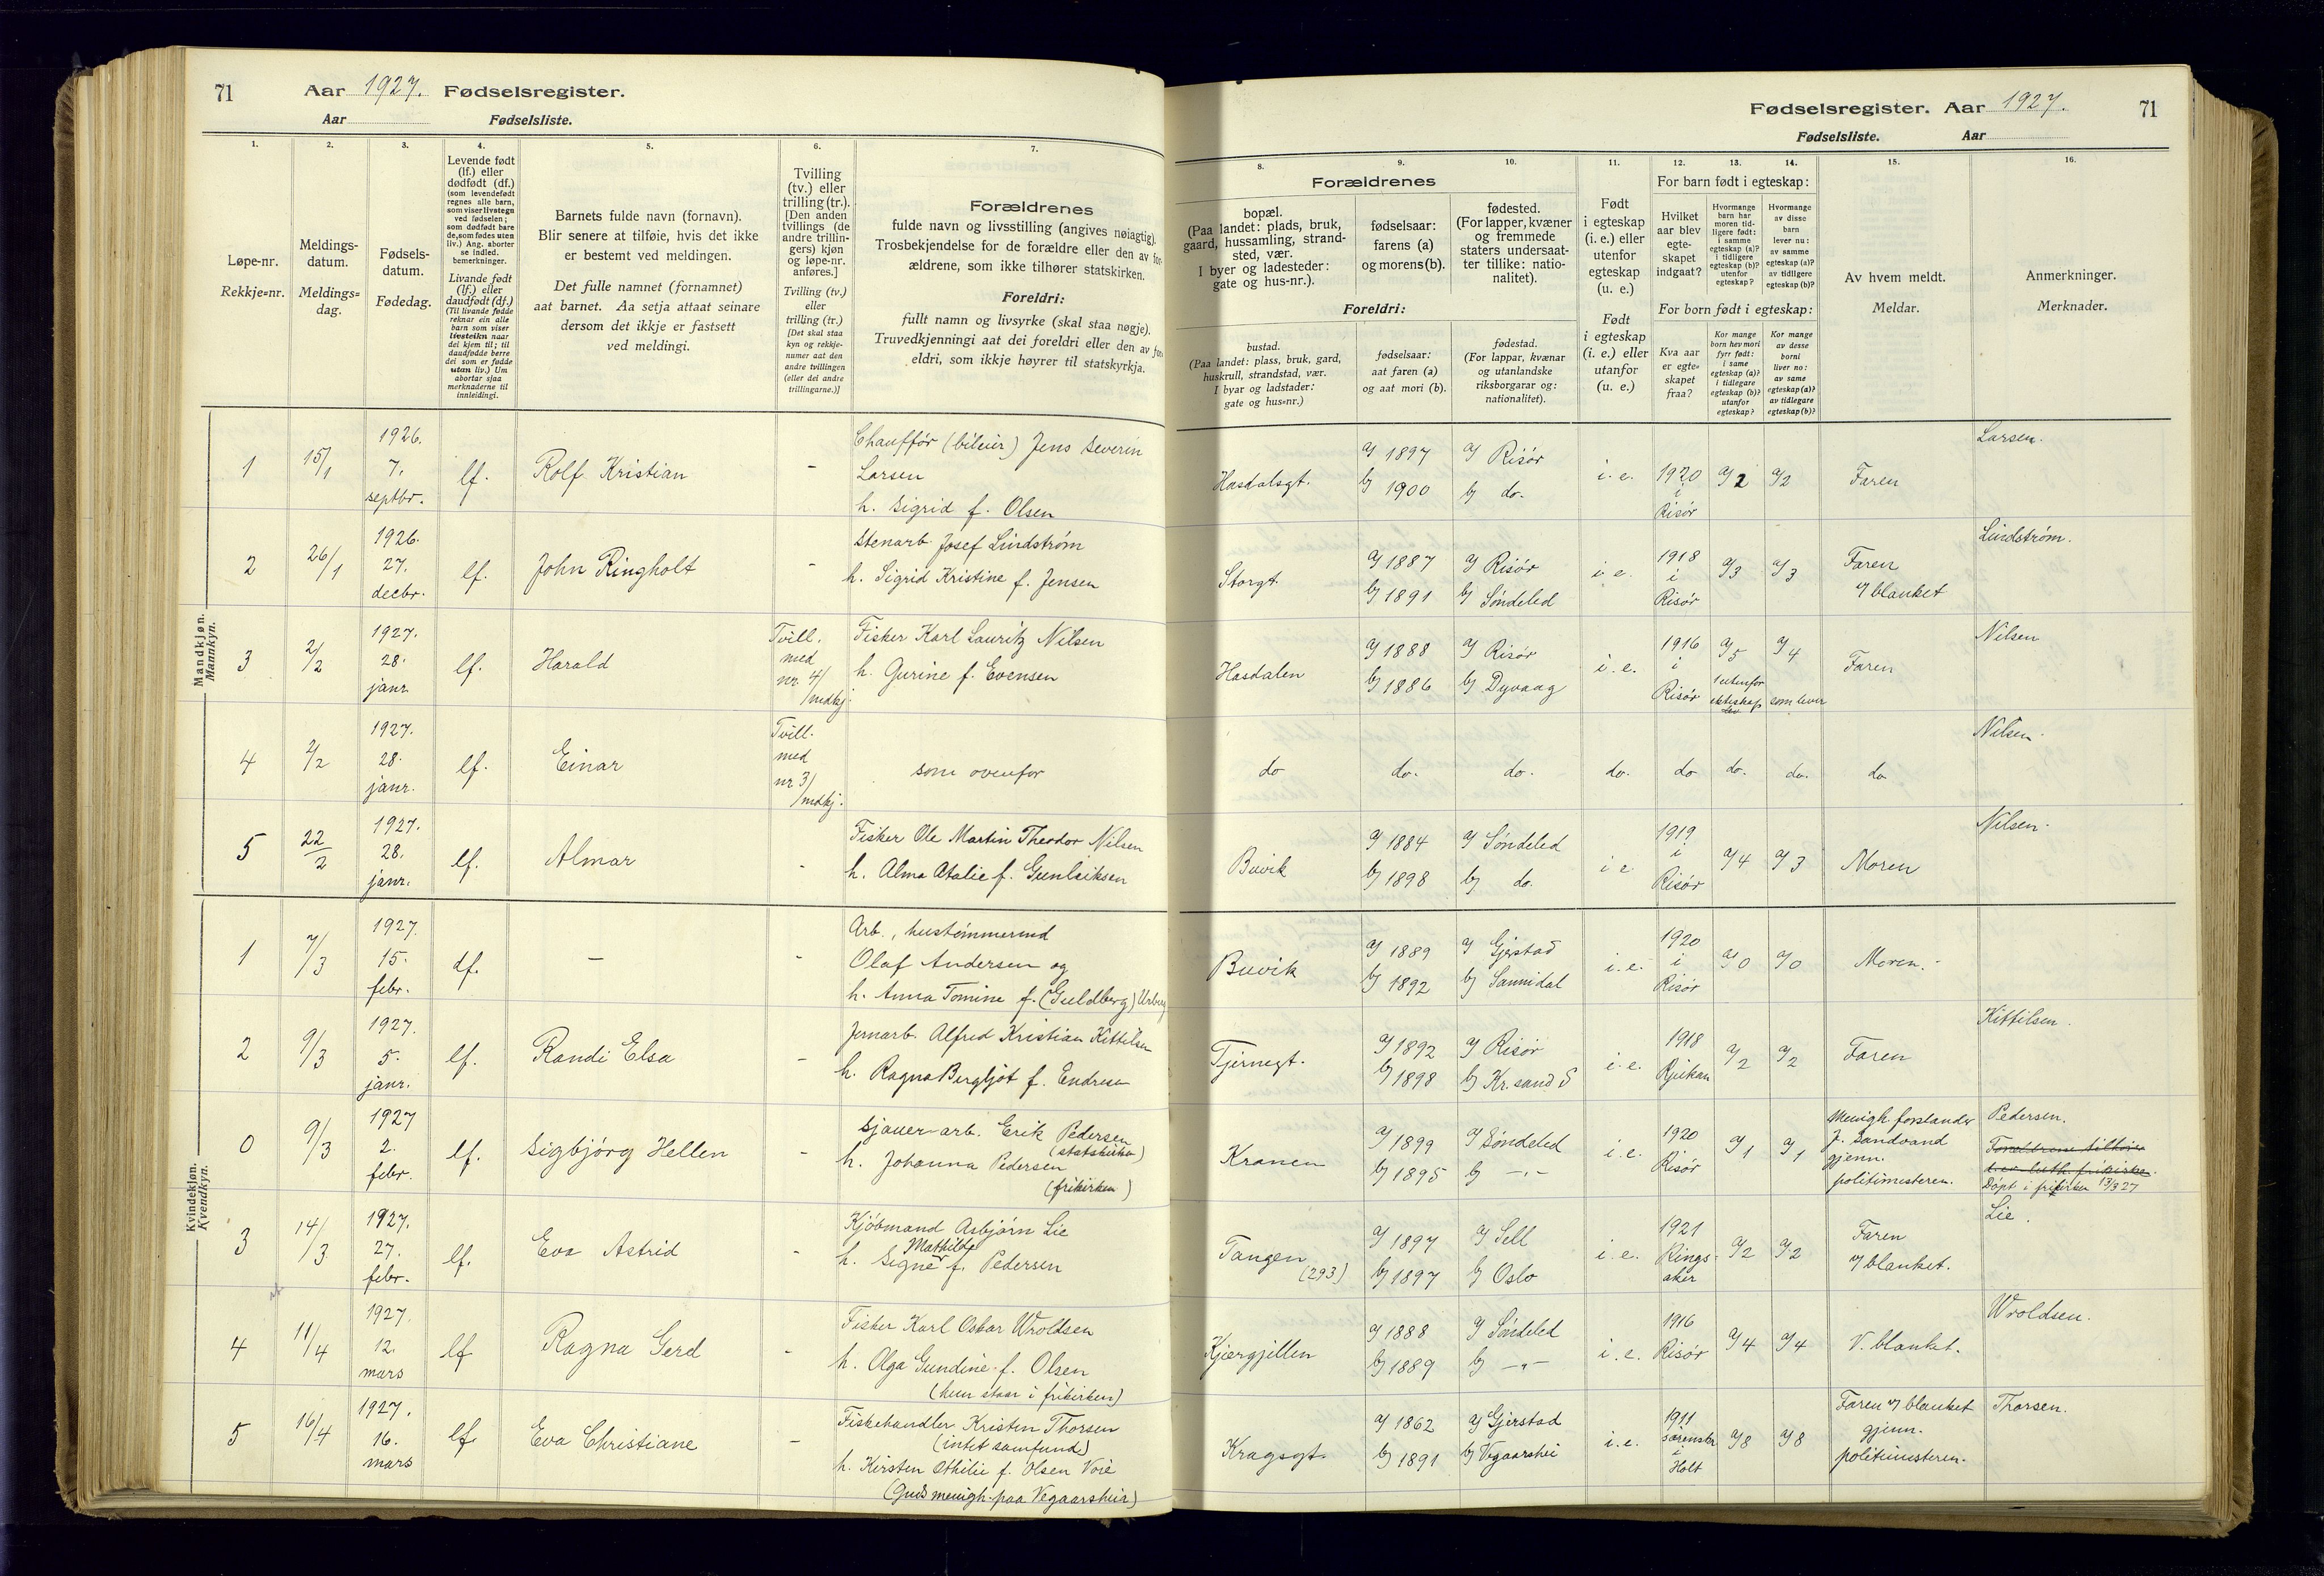 71 Aar 1927. Fødselsregister.
Aar Fødselsliste.
Fødselsregister. Aar 1927. 71
Fødselsliste. Aar
1. 2. 3. 4. 5. 6. 7.
Løpe-nr.
Rekkje-nr.
Meldings-
datum.
Meldings-
dag.
Fødsels-
datum.
Fødedag.
Levende født
(lf.) eller
dødfødt (df.)
(som levendefødt
regnes alle barn,
som viser livstegn
ved fødselen;
som dødfødt bare
de, som fødes uten
liv.) Ang. aborter
se indled.
bemerkninger.
Livande født
(lf.) eller
daudfødt (df.)
(Til livande fødde
reknar ein alle
born som viser
livsteikn naar
dei kjem til; til
daudfødde berre
dei som er fødde
utan liv.) Um
abortar sjaa
merknaderne til
innleidingi.
Barnets fulde navn (fornavn).
Blir senere at tilføie, hvis det ikke
er bestemt ved meldingen.
Det fulle namnet (fornamnet)
aat barnet. Aa setja attaat seinare
dersom det ikkje er fastsett
ved meldingi.
Tvilling
(tv.) eller
trilling (tr.).
[Den anden
tvillings (de
andre trillin-
gers) kjøn
og løpe-nr.
anføres.]
Tvilling (tv.)
eller
trilling (tr.)
[Det skal staa
kyn og rekkje-
numer aat den
andre tvillingen
(eller dei andre
trillingarne.)]
Forældrenes
fulde navn og livsstilling (angives nøiagtig).
Trosbekjendelse for de forældre eller den av for-
ældrene, som ikke tilhører statskirken.
Foreldri:
fullt namn og livsyrke (skal staa nøgje).
Truvedkjenningi aat dei foreldri eller den av for-
eldri, som ikkje høyrer til statskyrkja.
8. 9. 10. 11. 12. 13. 14. 15. 16.
Forældrenes
bopæl.
(Paa landet: plads, bruk,
gaard, hussamling, strand-
sted, vær.
I byer og ladesteder:
gate og hus-nr.).
fødselsaar:
farens (a)
og morens (b).
fødested.
(For lapper, kvæner
og fremmede
staters undersaat-
ter tillike: natio-
nalitet).
Foreldri:
bustad.
(Paa landet: plass, bruk, gard,
huskrull, strandstad, vær.
I byar og ladstader:
gate og hus-nr.)
fødselsaar:
aat faren (a)
og aat mori (b).
fødestad.
(For lappar, kvænar
og utanlandske
riksborgarar og:
nationalitet).
Født
i egteskap
(i. e.) eller
utenfor
egteskap
(u. e.)
Født
i egteskap
(i. e.) eller
utanfor
(u. e.)
For barn født i egteskap:
Hvilket
aar blev
egte-
skapet
indgaat?
Hvormange
barn har
moren tid-
ligere født:
i samme
egteskap (a)?
i tidligere
egteskap (b)?
utenfor
egteskap?
Hvormange
av disse
barn
lever nu:
av samme
egteskap (a)?
av tidligere
egteskap (b)?
For born født i egteskap:
Kva aar
er egte-
skapet
fraa?
Kor mange
born hev mori
fyrr født:
i same
egteskap (a)?
i tidlegare
egteskap (b)?
utanfor
egteskap?
Kor mange
av desse
borni
liver no:
av same
egteskap (a)?
av tidlegare
egteskap (b)?
Av hvem meldt.
Meldar.
Anmerkninger.
Merknader.
Mandkjøn.
Mannkyn.
1 15/1 1926. 7. septbr. lf. Rolf Kristian - Chauffør (bileier) Jens Severin
Larsen
h. Sigrid f. Olsen
Hasdalsgt. a) 1897 b) 1900 a) Risør b) do. i. e. 1920 i Risør a) 2 a) 2 Faren Larsen.
2 26/1 1926. 27. decbr. lf. John Ringholt - Stenarb. Josef Lindstrøm
h. Sigrid Kristine f. Jensen
Storgt. a) 1887 b) 1891 a) Risør b) Søndeled i. e. 1918 i Risør a) 3 a) 3 Faren
v/ blanket Lindstrøm.
3 2/2 1927. 28. janr. lf. Harald Tvill. med nr. 4/ mdkj. Fisker Karl Lauritz Nilsen
h. Gurine f. Evensen
Hasdalen a) 1888 b) 1886 a) Risør b) Dyvaag i. e. 1916 i Risør a) 5 1 utenfor ekteskap a) 4 som lever Faren Nilsen
4 2/2 1927. 28. janr. lf. Einar Tvill. med nr 3/ mdkj. som ovenfor
do do. do. do. do do. do. do Nilsen.
5 22/2 1927. 28. janr. lf. Almar - Fisker Ole Martin Theodor Nilsen
h. Alma Atalie f. Gunleiksen
Buvik a) 1884 b) 1898 a) Søndeled b) do. i e. 1919 i Risør a) 4 a) 3 Moren Nilsen.
Kvindekjøn.
Kvendkyn.
1 7/3 1927. 15. febr. df. - - Arb., hustømmermd
Olaf Andersen og
h. Anna Tomine f. (Guldberg)
Buvik a) 1889 b) 1892 a) Gjerstad b) Sannidal i. e. 1920 i Risør a) 0 a) 0 Moren.
2 9/3 1927. 5. janr. lf. Randi Elsa - Jernarb. Alfred Kristian Kittilsen
h. Ragna Bergljot f. Endresen
Tjernegt. a) 1892 b) 1898 a) Risør b) Kr.sand S i. e. 1918 Rjukan a) 2 a) 2 Faren Kittilsen.
0 9/3 1927 2. febr. lf. Sigbjørg Hellen - Sjauer-arb. Erik Pedersen
(statskirken)
h. Johanna Pedersen
(frikirken)
Kranen a) 1899 b) 1895 a) Søndeled b) -„- i. e. 1920 Risør a) 1 a) 1 Menigh. forstander
J. Sandvand
gjenn.
politimesteren. Pedersen.
Foreldrene tilhører
d. ev. luth. frikirke.
Døpt i frikirken 13/3 27
3 14/3 1927. 27. febr. lf. Eva Astrid - Kjøbmand Asbjørn Lie
h. Signe Mathilde f. Pedersen
Tangen (293) a) 1897 b) 1897 a) Sell b) Oslo i. e. 1921 Rings- aker a) 2 a) 2 Faren
v/ blanket. Lie.
4 11/4 1927. 12. mars lf Ragna Gerd - Fisker Karl Oskar Wroldsen
h. Olga Gundine f. Olsen
(hun staar i frikirken)
Kjærgjillen a) 1888 b) 1889 a) Søndeled b) -„- i. e. 1916 Risør a) 4 a) 4 V. blanket. Wroldsen.
5 16/4 1927. 16. mars lf. Eva Christiane - Fiskehandler Kristen Thorsen
(intet samfund)
h. Kirsten Othilie f. Olsen Voie
(Guds menigh. paa Vegaarshei)
Kragsgt. a) 1862 b) 1891 a) Gjerstad b) Vegaarshei i. e. 1911 i Holt a) 8 a) 8 Faren v/ blanket
gjenn.
politimesteren. Thorsen.